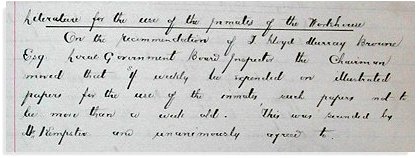 Literature for the use of the Inmates of the Workhouse
On the recommendation of J. Lloyd Murray Browne
Esq Local Government Board Inspector the Chairman
moved that weekly be expended on illustrated
papers for the use of the inmates, such papers not to
be more than a week old. This was seconded by
Kempster and unanimously agreed to.